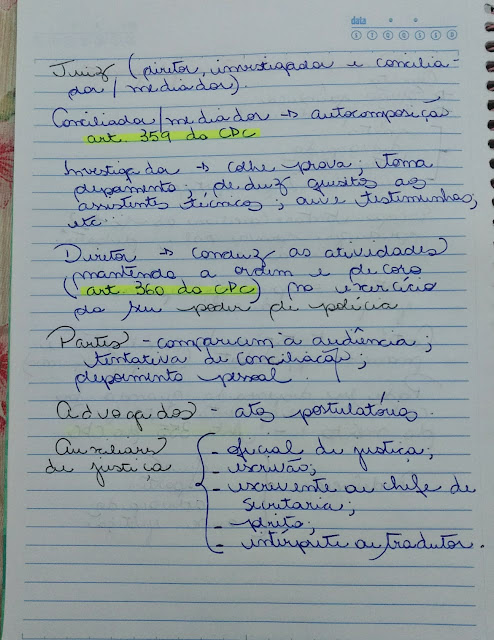 data
S T Q Q S S D
Juiz (diretor, investigador e concilia-
dor/mediador).
Conciliador/mediador → autocomposição
art. 359 do CPC
Investigador → colhe prova; toma
depoimento; deduz quesitos aos
assistentes técnicos; ouve testemunhas;
etc
Diretor → conduz as atividades
mantendo a ordem e decoro
(art. 360 do CPC) no exercício
do seu poder de polícia
Partes - comparecem à audiência;
tentativa de conciliação;
depoimento pessoal.
Advogados - atos postulatórios.
Auxiliares
de justiça
- oficial de justiça;
- escrivão;
- escrevente ou chefe de
secretaria;
- perito;
- intérprete ou tradutor.